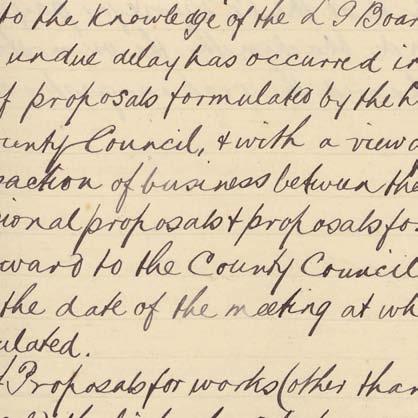 to the knowledge of the L G Boar
undue delay has occurred in
f proposals formulated by the
unty Council, & with a view
saction of business between the
ional proposals & proposals for
ward to the County Council
the date of the meeting at wh
ulated.
Proposals for works (other than